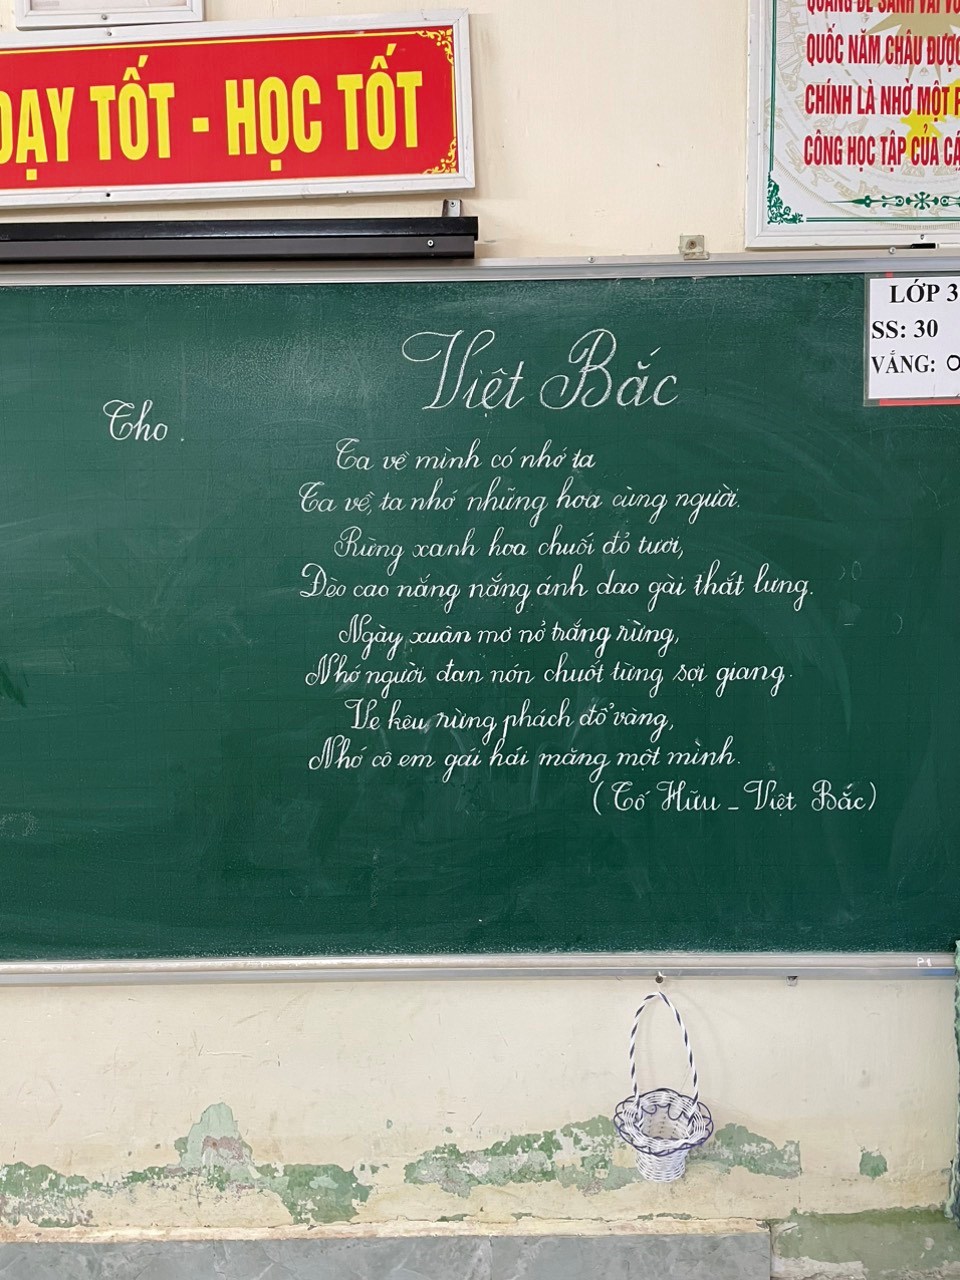 DẠY TỐT - HỌC TỐT
QUỐC NĂM CHÂU ĐƯỢC
CHÍNH LÀ NHỜ MỘT
CÔNG HỌC TẬP CỦA
LỚP 3
SS: 30
VẮNG: 0
Việt Bắc
Tho.
Ta về mình có nhớ ta
Ta về, ta nhớ những hoa cùng người.
Rừng xanh hoa chuối đỏ tươi,
Đèo cao nắng nắng ánh dao gài thắt lưng.
Ngày xuân mơ nở trắng rừng,
Nhớ người đan nón chuốt từng sợi giang.
Ve kêu rừng phách đổ vàng,
Nhớ cô em gái hái măng một mình.
(Tố Hữu - Việt Bắc)